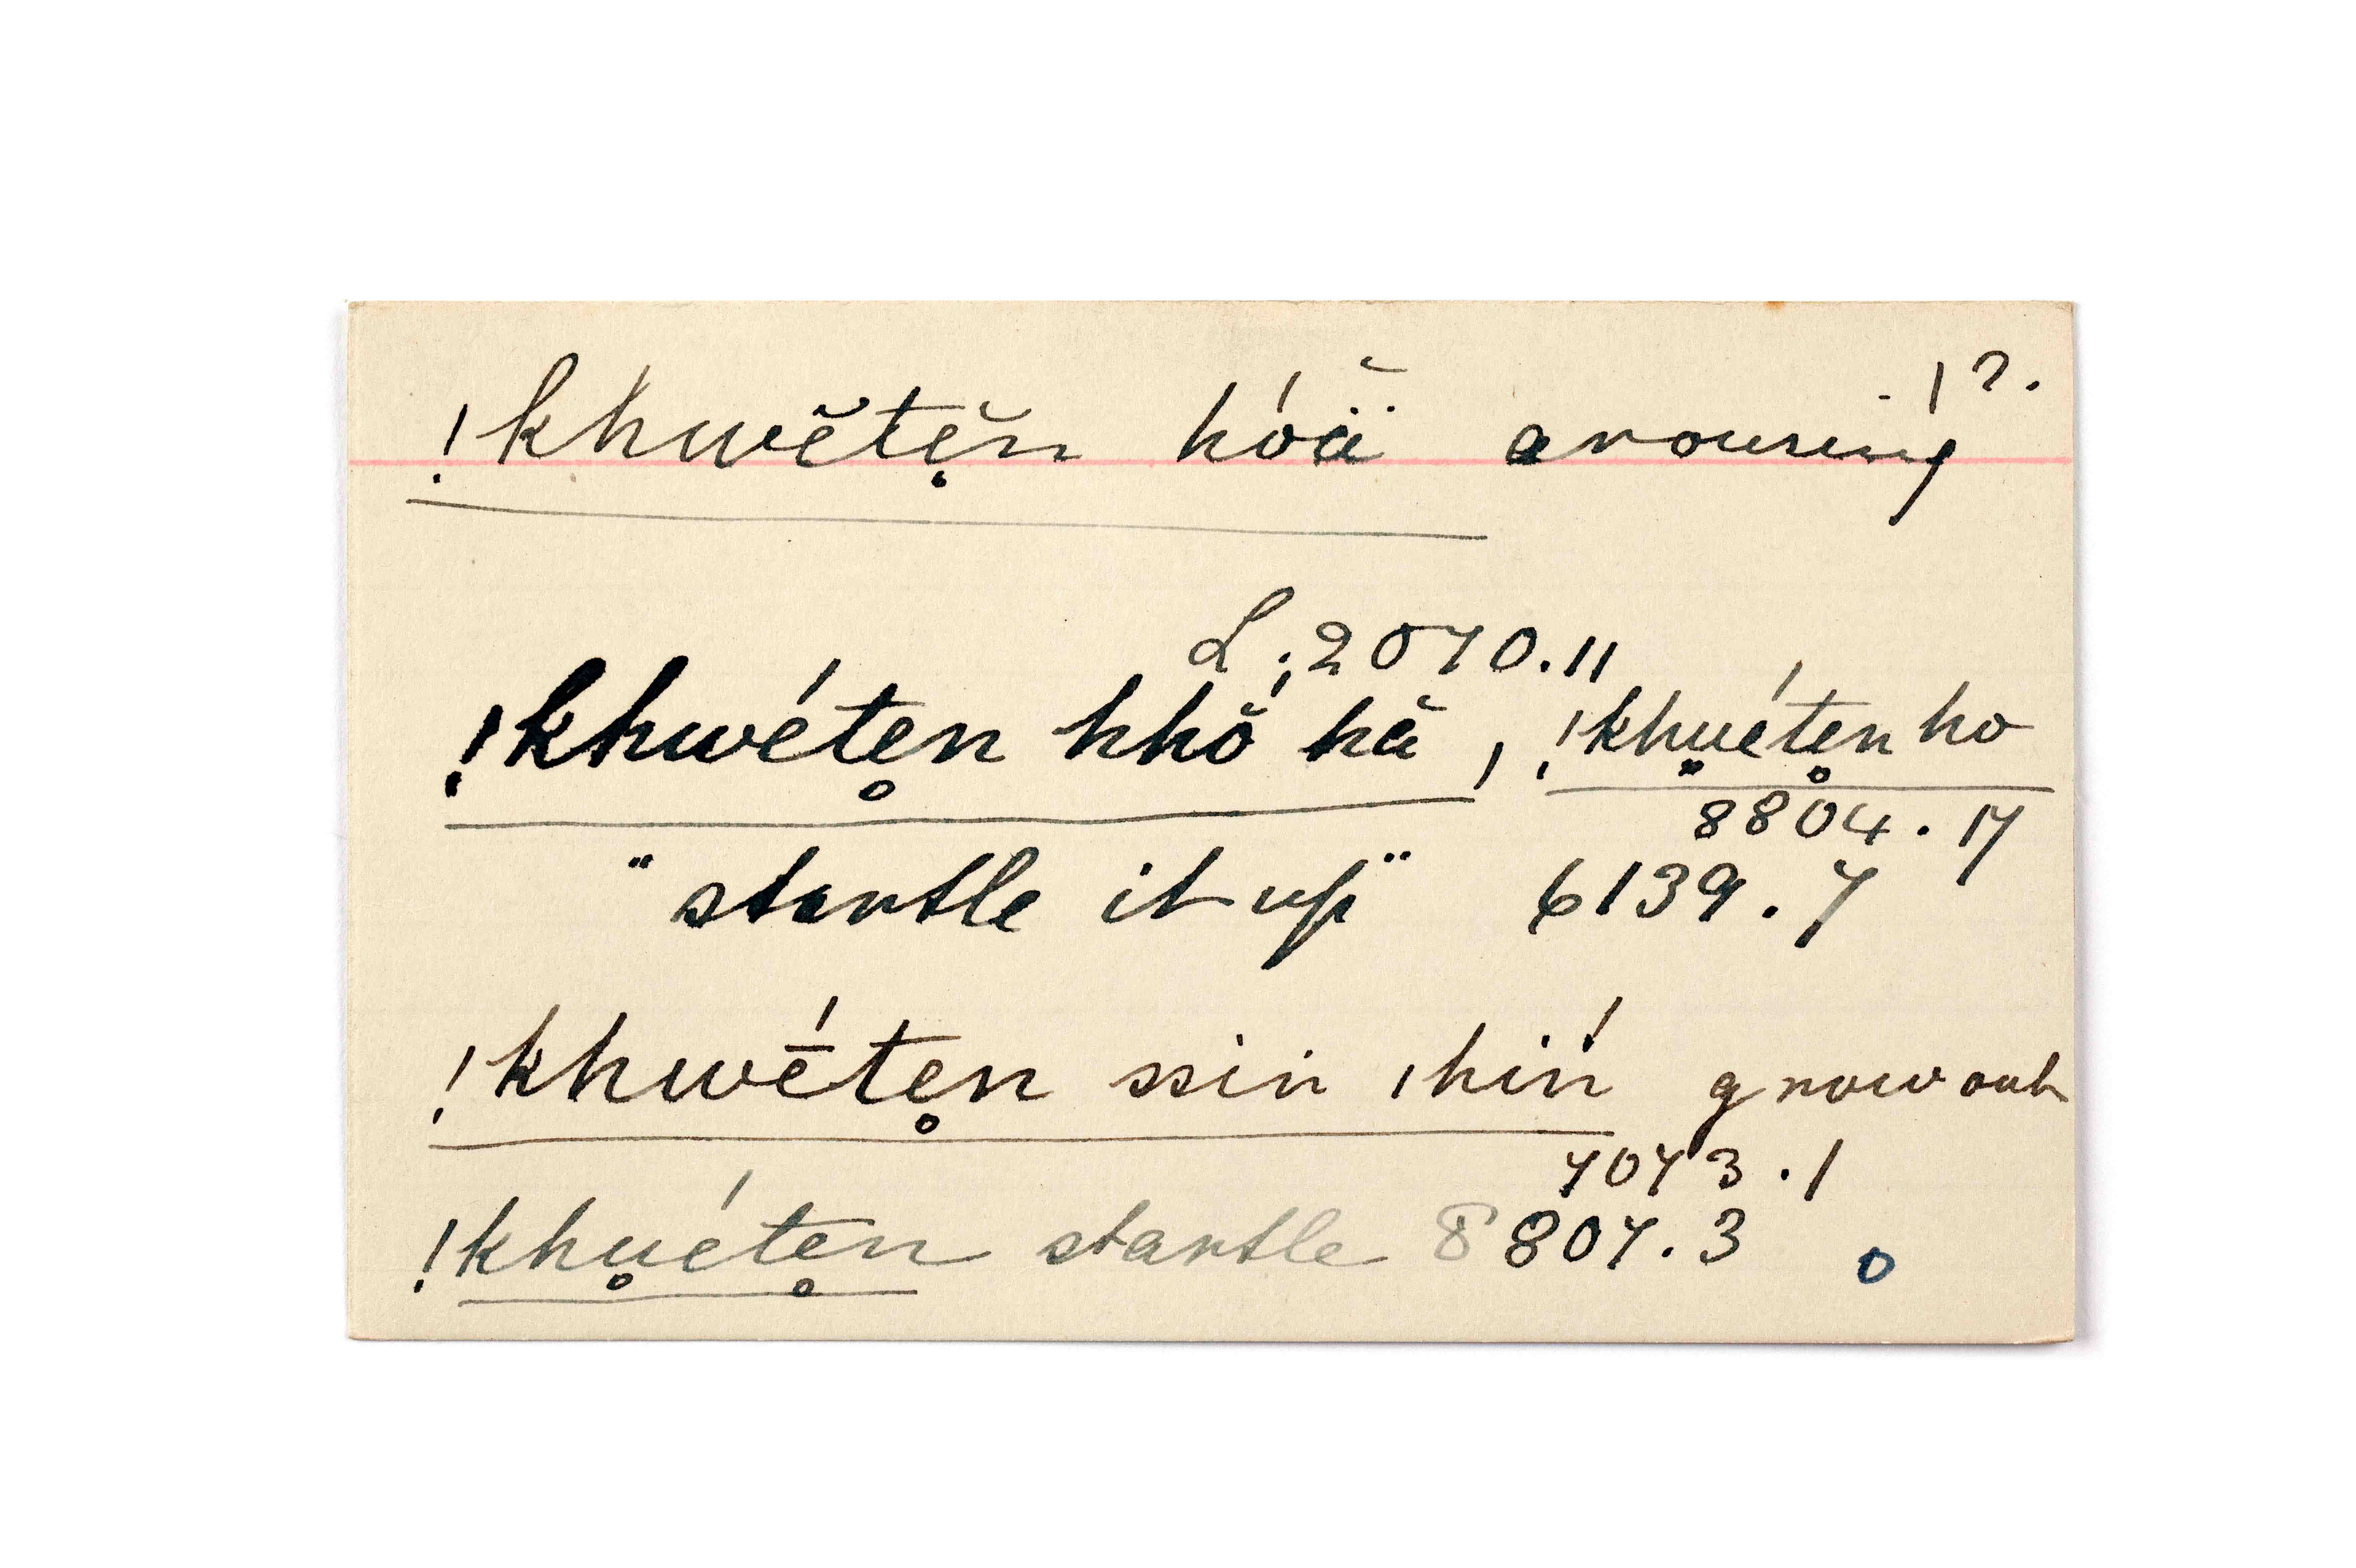 !?.
!khwĕ́tẹ̆n hóä̆ arousing
L; 2070.11
!khwétẹn hhŏ́ hă, !khụétẹn ho
8804.17
"startle it up" 6139.7
!khwḗtẹn ssin ıhiń grow out
7073.1
!khụétẹn startle 8807.3 o